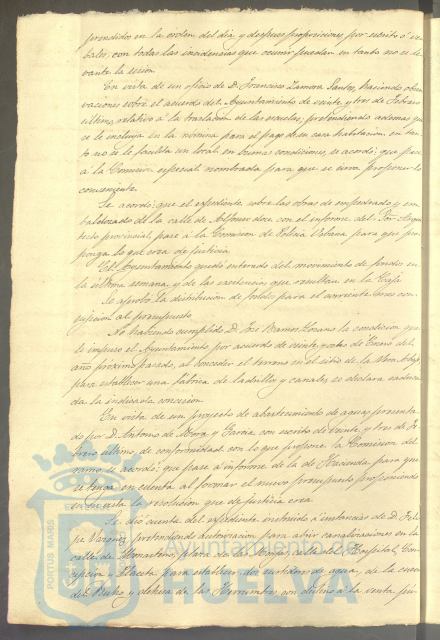 prendidos en la orden del dia y despues proposiciones por escrito ó ver
bales, con todas las incidencias que ocurrir puedan en tanto no se le
vante la sesion.
En vista de un oficio de D. Francisco Zamora Santos, haciendo obser
vaciones sobre el acuerdo del Ayuntamiento de veinte y tres de Febrero
último, relativo á la traslacion de las escuelas; pretendiendo ademas que
se le incluya en la nómina para el pago de su casa habitacion, en tan
to no se le facilita un local en buenas condiciones, se acordó: que pase
á la Comision especial nombrada para que se sirva proponer lo
conveniente.
Se acordó: que el expediente sobre las obras de empedrado y em
baldosado de la calle de Alfonso doce con el informe del Sor. Arqui
tecto provincial, pase á la Comision de Policia Urbana para que pro
ponga lo que crea de justicia.
El Ayuntamiento quedó enterado del movimiento de fondos en
la última semana, y de las existencias que resultan en la Caja.
Se aprobó la distribucion de fondos para el corriente mes con
sujecion al presupuesto.
No habiendo cumplido D. José Ramos Lozano la condicion que
le impuso el Ayuntamiento por acuerdo de veinte y ocho de Enero del
año próximo pasado, al conceder el terreno en el sitio de la
para establecer una fabrica de ladrillos y canales se declara caduca
da la indicada concesion.
En vista de un proyecto de abastecimiento de aguas presenta
do por D. Antonio de Mora y Garcia con escrito de veinte y tres de Fe
brero último, de conformidad con lo que propone la Comision del
ramo se acordó: que pase á informe de la de Hacienda para que
se tenga en cuenta al formar el nuevo presupuesto proponiendo
en su vista la resolucion que de justicia crea.
Se dió cuenta del expediente instruido á instancias de D. Feli
pe Vazquez pretendiendo autorizacion para abrir canalizaciones en la
calle de Monasterio, para la calle del Hospital, Con
cepcion y Placeta para establecer de surtidores de agua, de la
de Buho y dehesa de las Herrumbres con destino á la venta pú
PORTUS MARIS
Ayuntamiento de
HUELVA